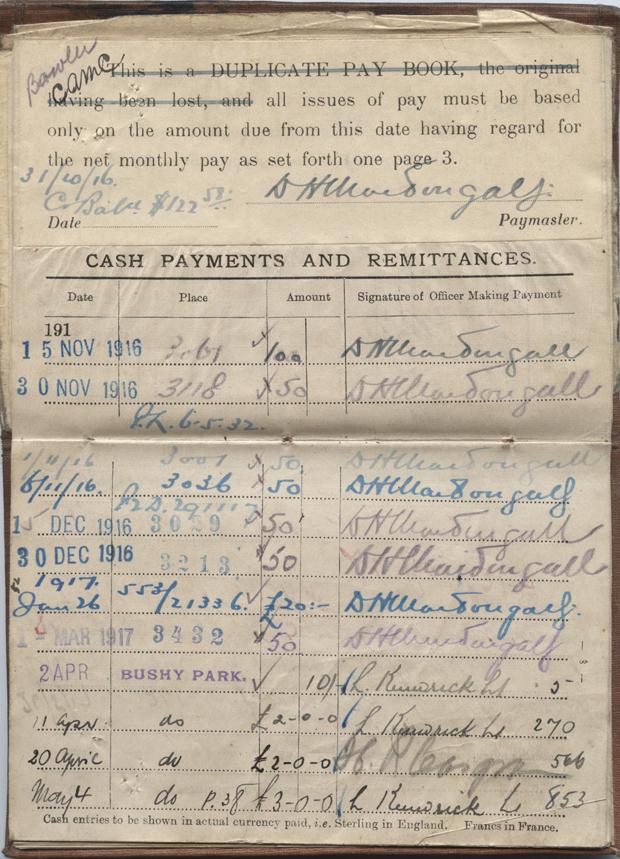 Bowler
CAMC
This is a DUPLICATE PAY BOOK, the original
having been lost, and all issues of pay must be based
only on the amount due from this date having regard for
the net monthly pay as set forth one page 3.
31/10/16.
C. Bal. $122 58. D H MacDougall
Date Paymaster.
CASH PAYMENTS AND REMITTANCES.
Date Place Amount Signature of Officer Making Payment
191
15 NOV 1916 3061 100 D H MacDougall
30 NOV 1916 3118 50 D H MacDougall
P.L. 6.5.32.
1/11/16 3001 50 D H MacDougall
6/11/16. 3036 50 D H MacDougall
291117
15 DEC 1916 3029 50 D H MacDougall
30 DEC 1916 3213 50 D H MacDougall
1917.
Jan 26 553/21336. £20:- D H MacDougall
1 MAR 1917 3432 50 D H MacDougall
2 APR BUSHY PARK. 10/ L Kenrick Lt 5
11 Apr. do £2-0-0 L Kenrick Lt 270
20 April do £2-0-0 566
May 4 do P.38 £3-0-0 L Kenrick Lt 853
Cash entries to be shown in actual currency paid, i.e. Sterling in England. Francs in France.